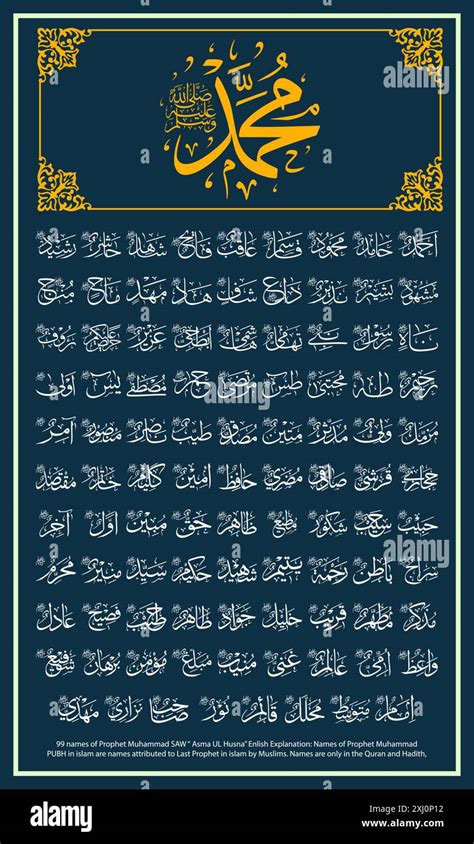 محمد
صلى الله عليه وسلم
أحمد حامد محمود قاسم عاقب فاتح شاهد حاشر رشيد
مشهود بشير نذير داع شاف هاد مهد ماح منج
ناه رسول نبي تهامي هاشمي ابطحي عزيز حريص عليكم رؤوف
رحيم طه مجتبى طس مرتضى حم مصطفى يس أولى
مزمل ولي مدثر متين مصدق طيب ناصر منصور آمر
قرشي مضري حافظ أمين مقتصد
حبيب شكور مطيع حق مبين أول آخر
سراج باطن رحمة يتيم حكيم سيد منير محرم
مذكر مطهر قريب خليل جواد طاهر خطيب فصيح عادل
واعظ أمي عالم غني منيب مبلغ مؤمن برهان شفيع
إمام متوسط محلل قائم نور صاحب نزاري مهدي
99 names of Prophet Muhammad SAW " Asma UL Husna" Enlish Explanation: Names of Prophet Muhammad
PUBH in islam are names attributed to Last Prophet in islam by Muslims. Names are only in the Quran and Hadith,
alamy
Image ID: 2XJ0P12
www.alamy.com